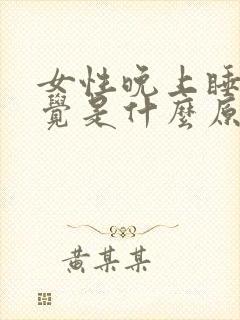 女性晚上睡
覺是什麼原
黃某某